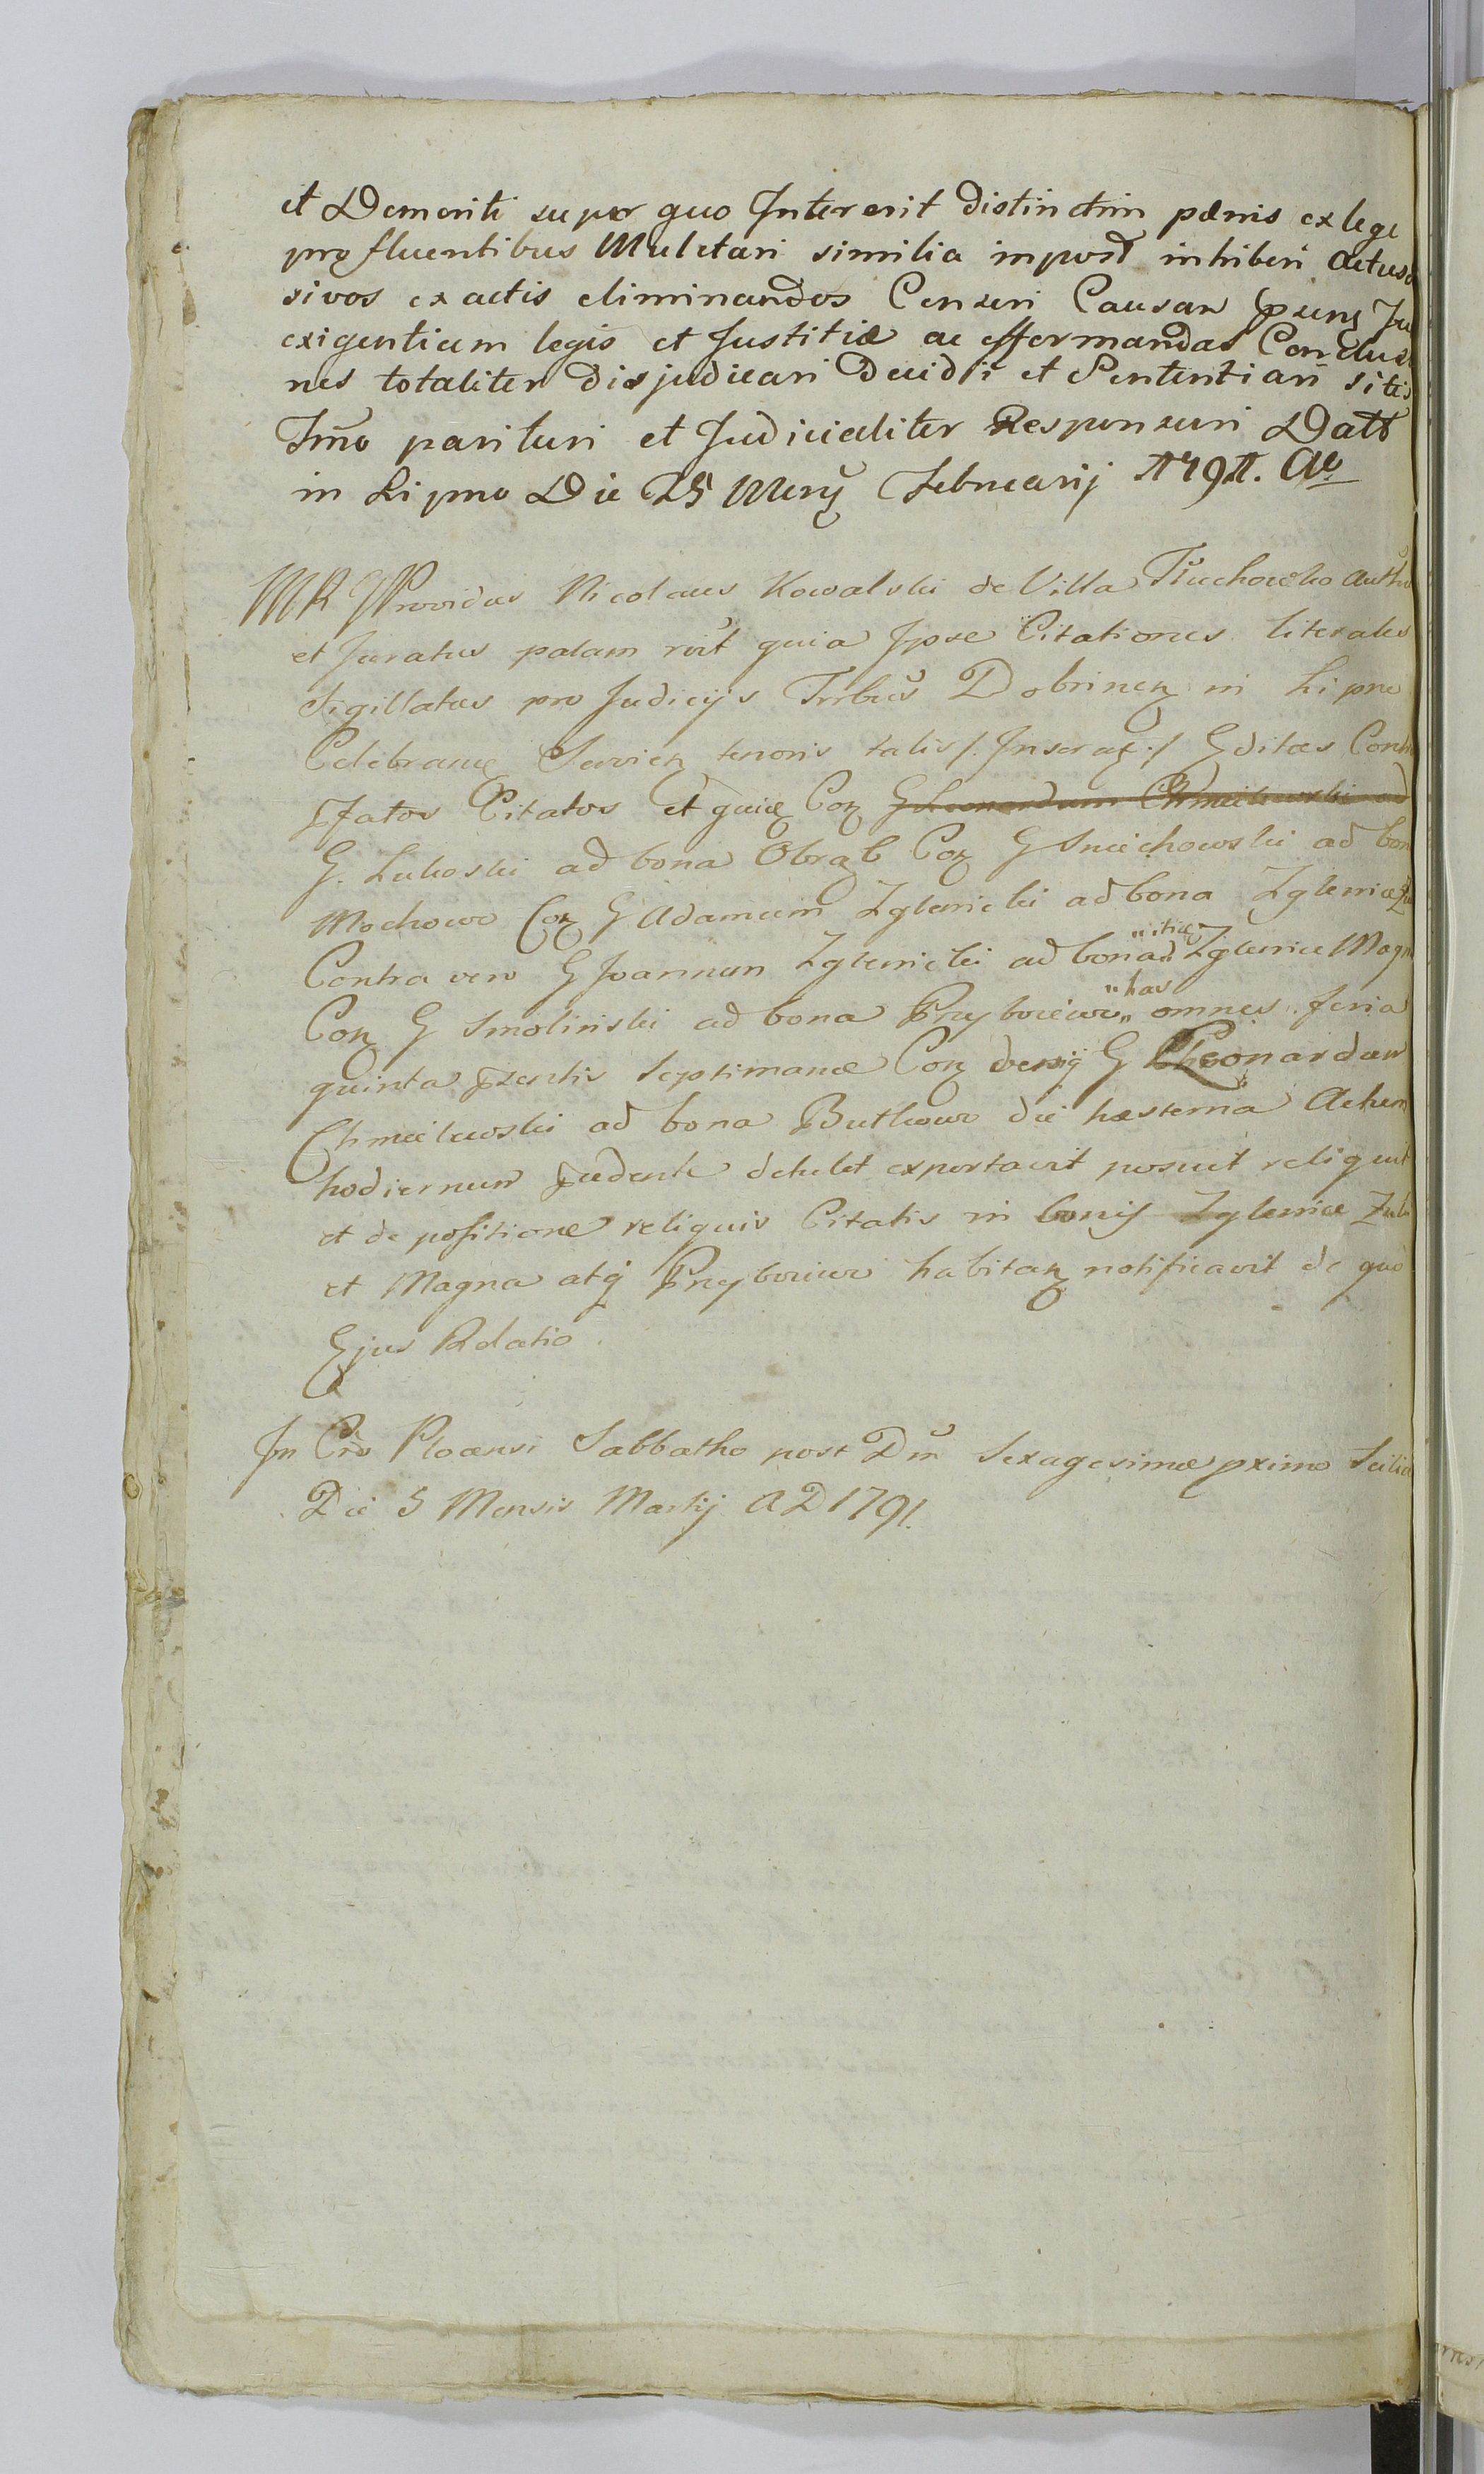 et Demeriti super quo Intererit distinctim pænis ex lege
profluentibus Mulctari similia in post inhiberi Actus
sivos ex actis eliminandos Censeri Causam
exigentiam legis et Justitiæ ac efformandas Conclusi
nes totaliter disjudicari Decidi et Sententiari sitis
Tmō parituri et Judicialiter Responsuri Datt
in Lipno Die 25 Mens Februarij 1791. Ao
MR Providus Nicolaus Kowalski de Villa Tłuchowko Auth
et Juratus palam rvit quia Ipse Citationes literales
Sigillatas pro Judicijs Trrbus Dobrinen in Lipno
Celebran Servien tenoris talis /. Inserat ./ Editas Cont
Pfatos Citatos et quia Con G Leonardum Chmielewski ad
G. Lukoski ad bona Obrąb Con G Smiechowski ad bon
Mochowo Con G Adamum Zglenicki ad bona Zglenice
Contra vero G Joannem Zglenicki ad bona "itia" Zglenice Magn
Con G Smolinski ad bona Przyborowo "has" omnes feria
quinta pzentis Septimanæ Con G Leonardum
Chmielewski ad bona Buthowo die hæsterna Actum
hodiernum detulit exportavit posuit reliquit
et de positione reliquis Citatis in bonis Zglenice
et Magna atq Przyborowo habitan notificavit de quo
Ejus Relatio.
In Cro Ploensi Sabbatho post Dm Sexagesimæ pximo Scilic
Die 5 Mensis Martij AD 1791.